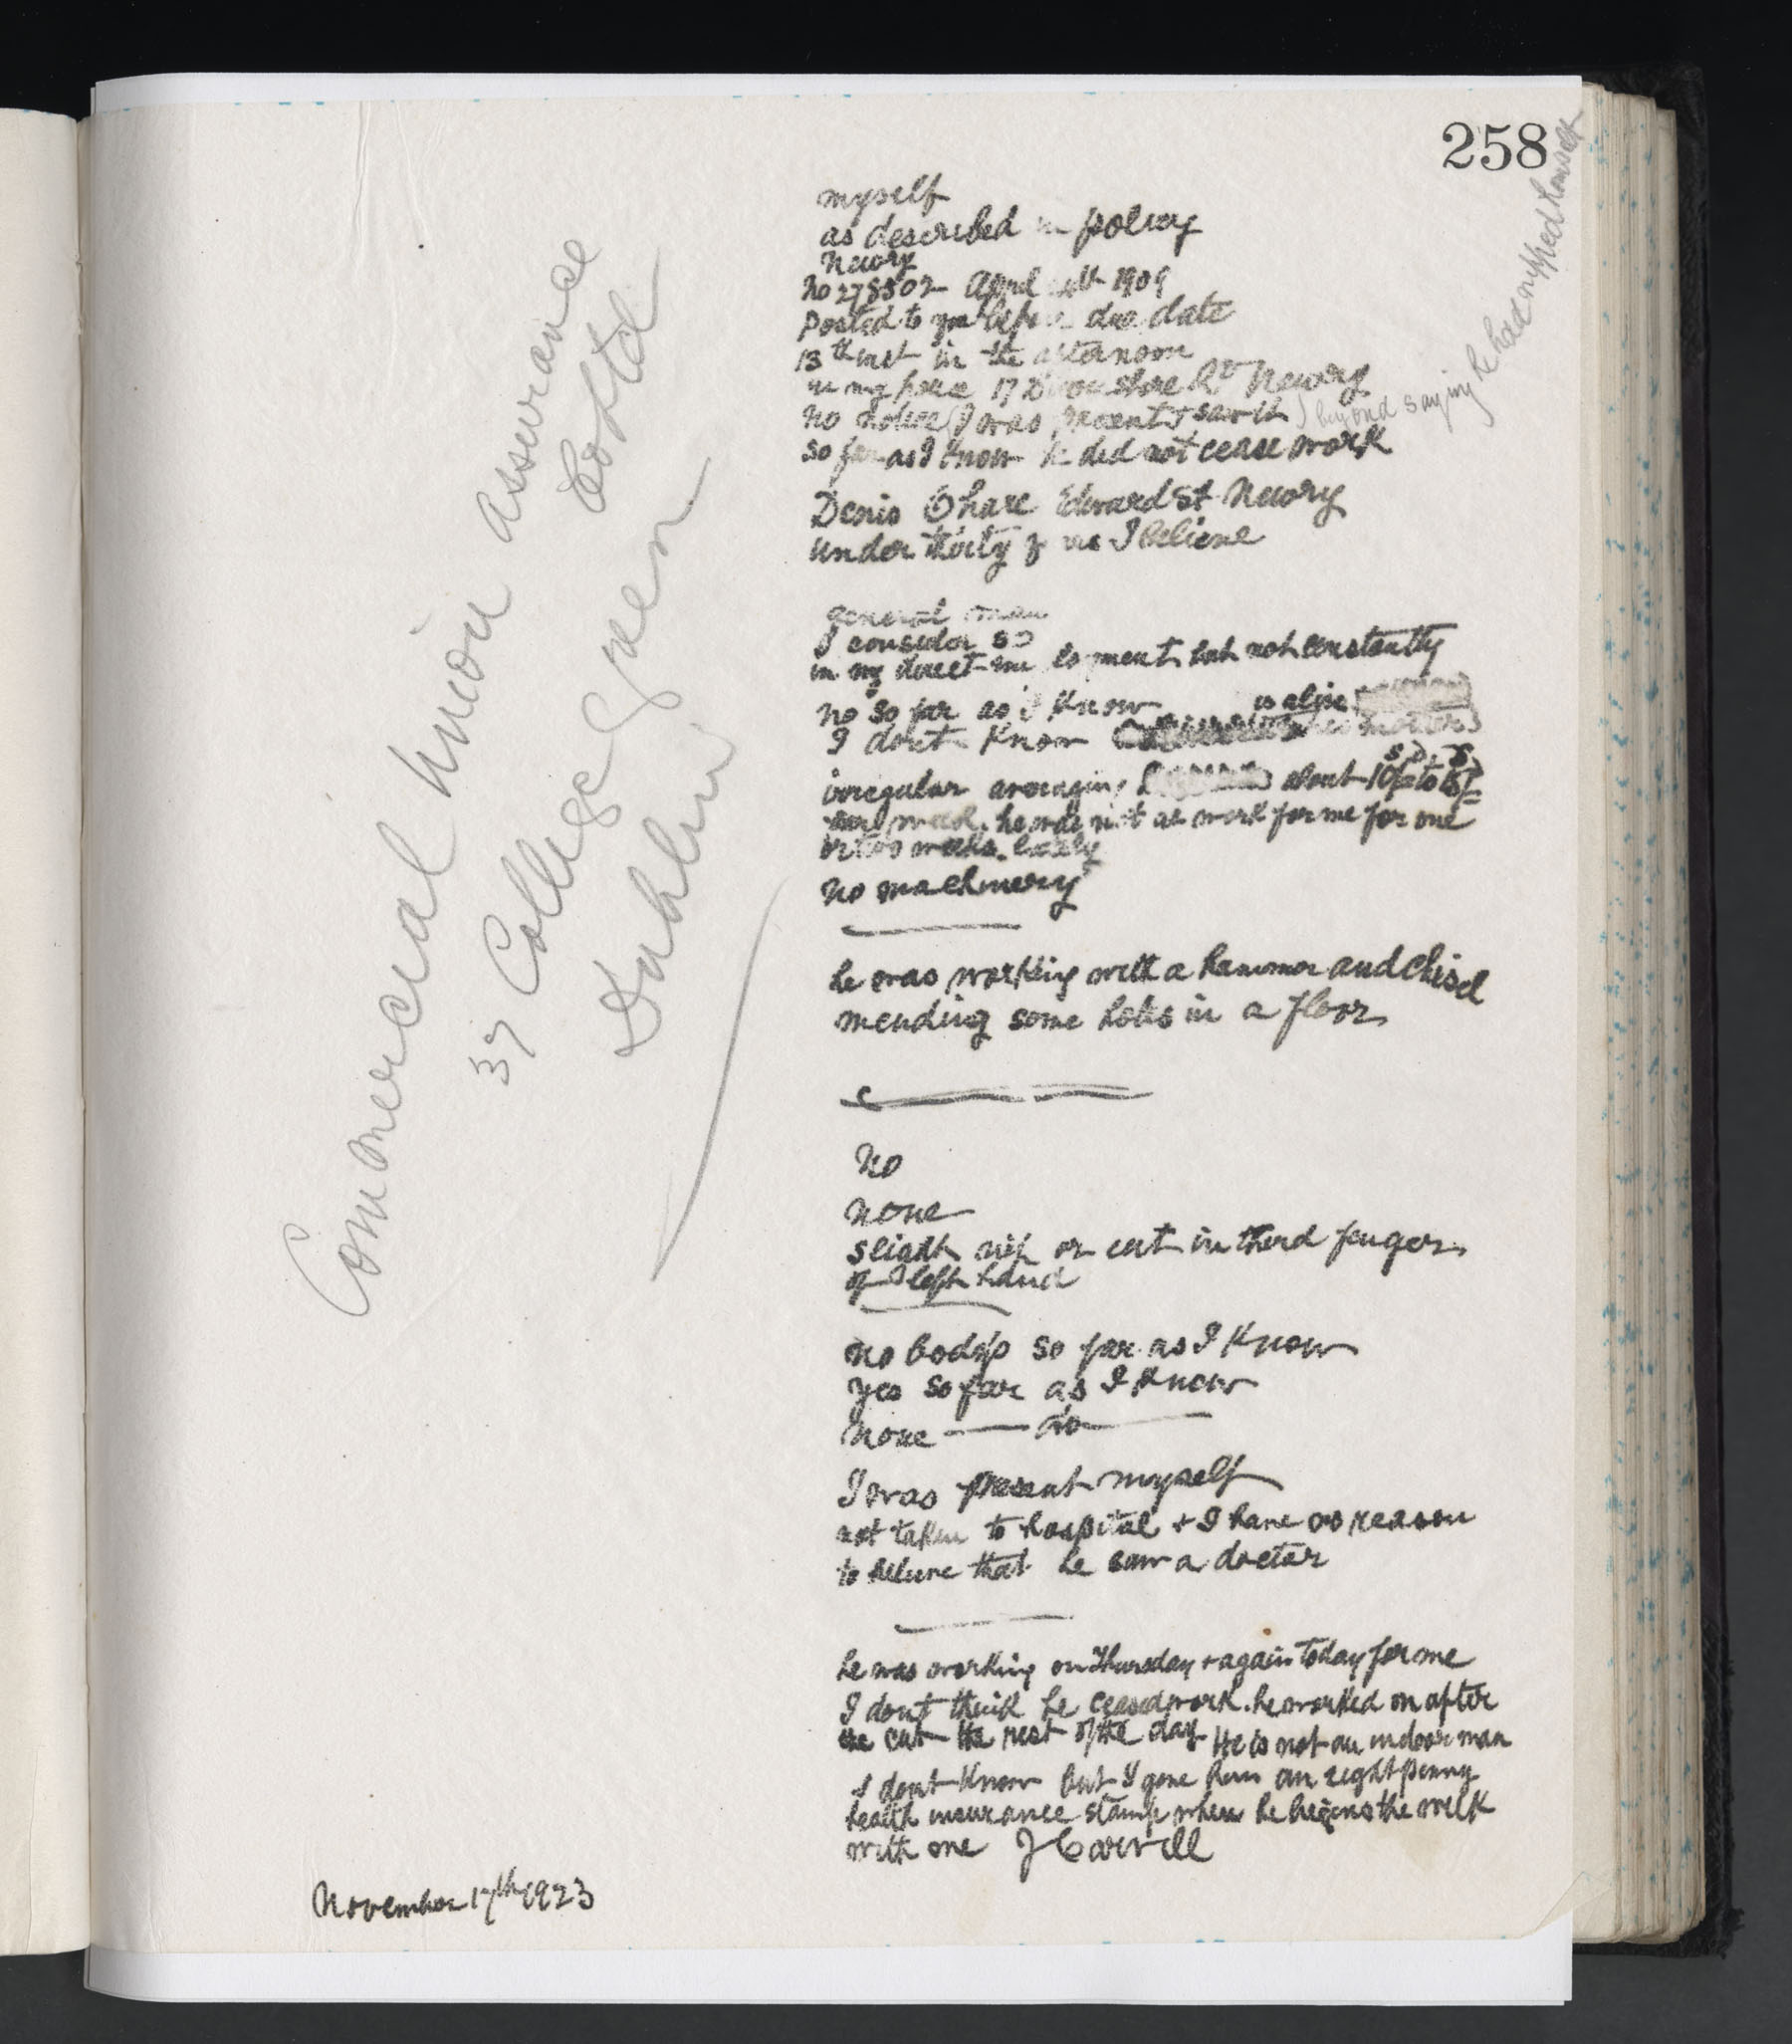 258
myself
as described in policy
Newry
No 278502 April 1909
Posted to you before due date
13th inst in the afternoon
in my house 17 Devonshire Rd Newry
No notice (I was present & saw it) beyond saying he had nipped himself
so far as I know he did not cease work
Denis O'hare Edward St Newry
under thirty I believe
general man
I consider so
in my direct employment but not constantly
no so far as I know
I dont know his mother is alive
irregular averaging about 10/- to 15/-
per week. he was not at work for me for one
or two weeks lately
No machinery
he was working with a hammer and chisel
mending some holes in a floor
No
None
Slight nip or cut in third finger
of left hand
No body's so far as I know
Yes so far as I know
None — do —
I was present myself
not taken to hospital & I have no reason
to believe that he saw a doctor
he was working on Thursday & again today for me
I dont think he ceased work. he worked on after
the cut the rest of the day He is not an indoor man
I dont know but I gave him an eightpenny
health insurance stamp when he begins the week
with me J Carvill
November 17th 1923
Commercial Union Assurance
Co Ltd
37 College Green
Dublin